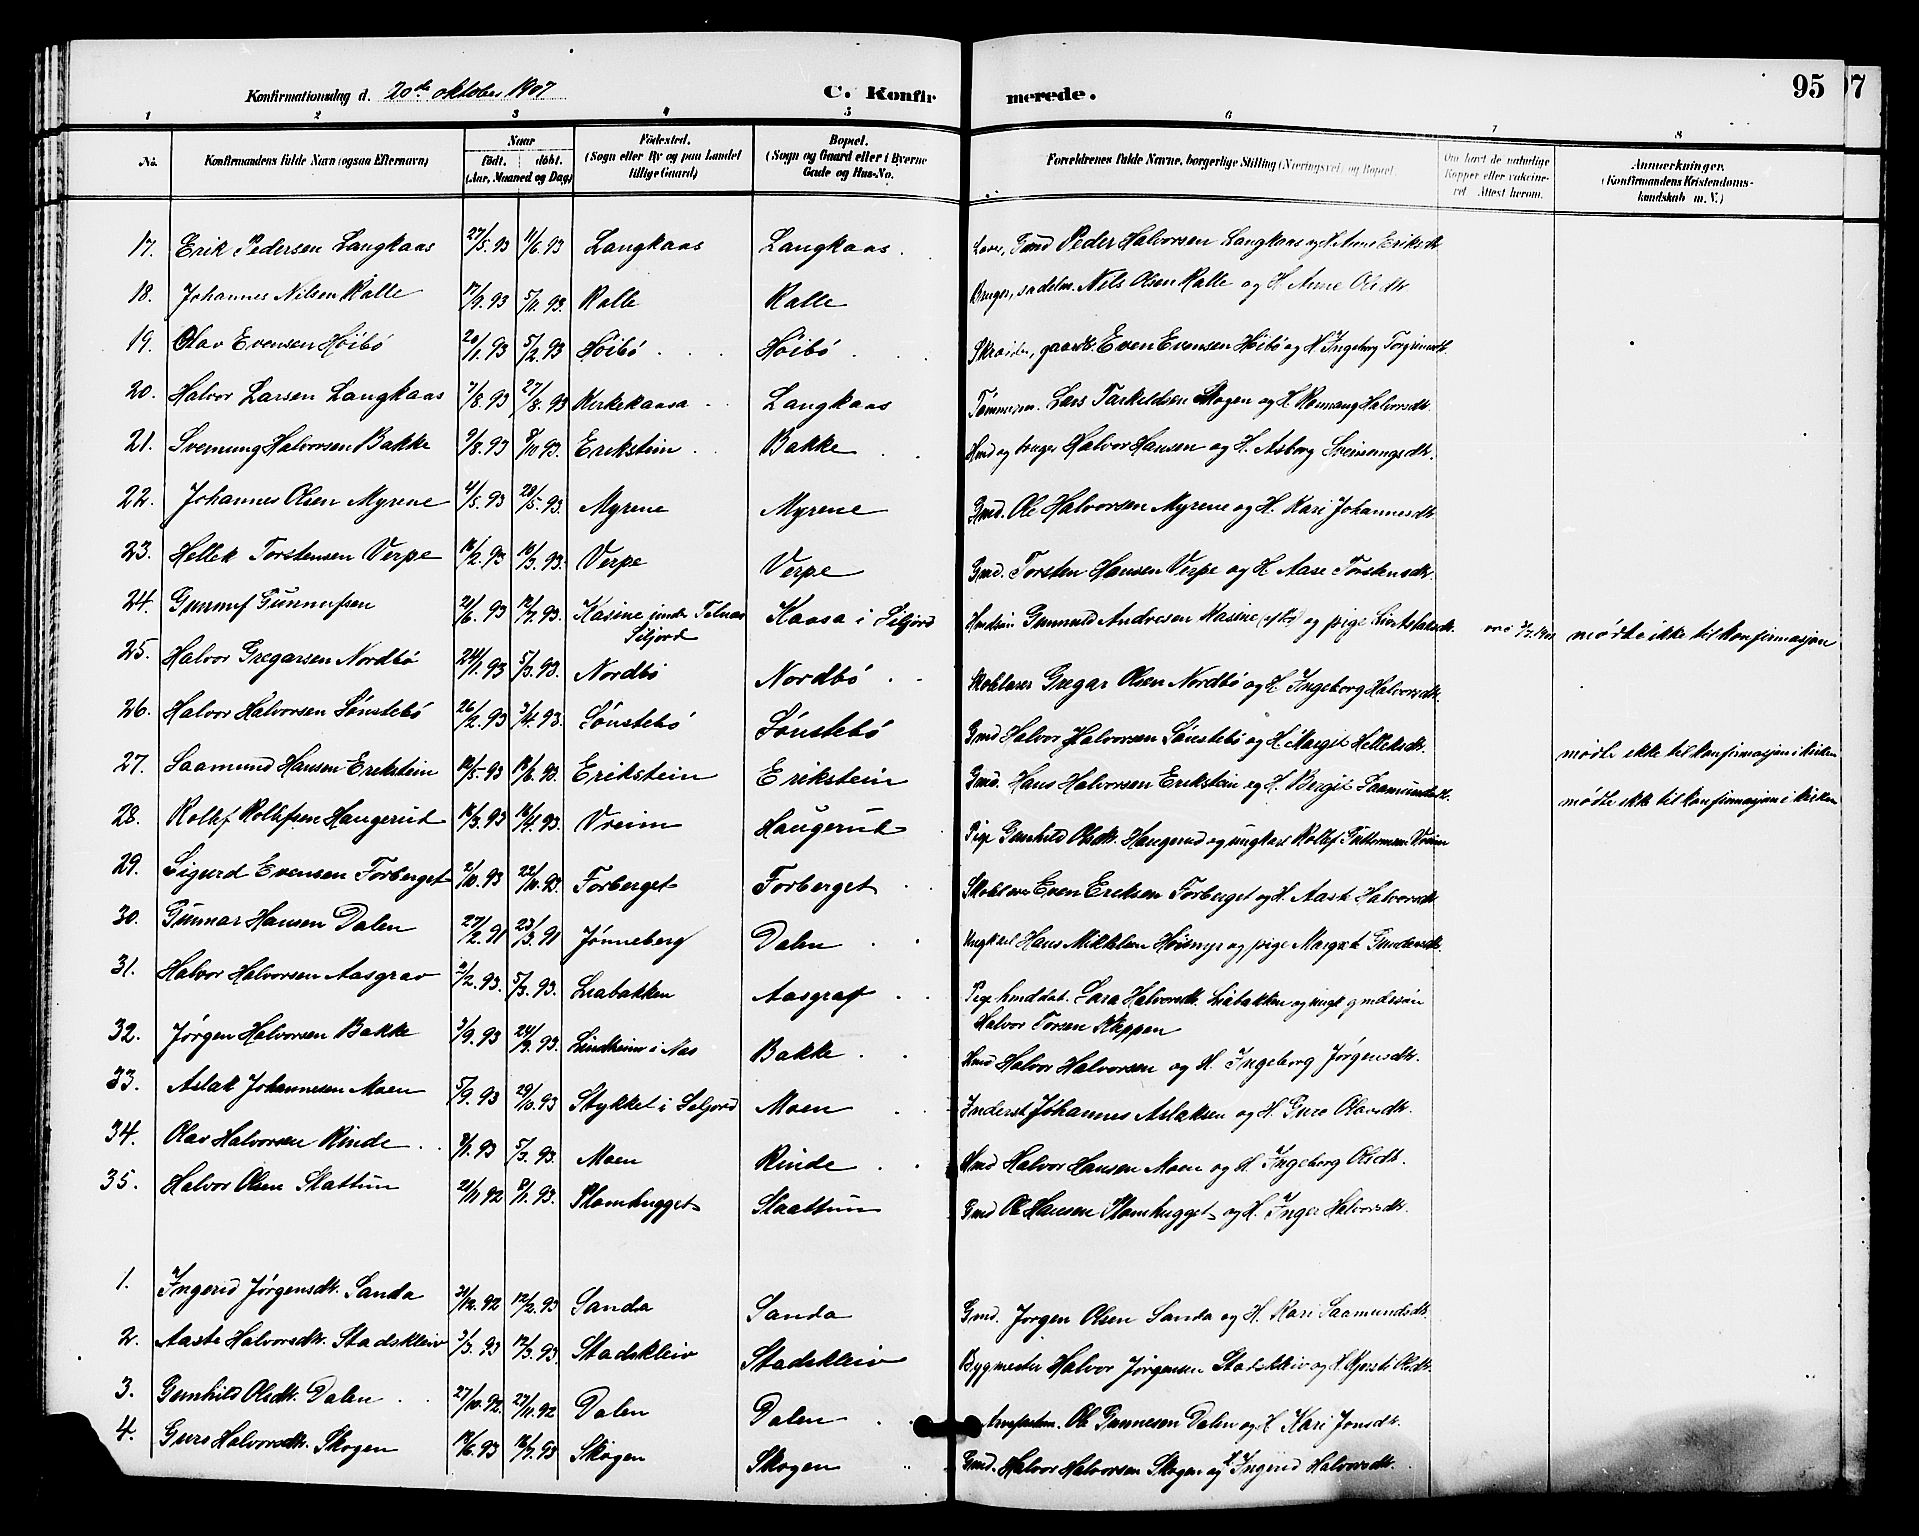 Konfirmationsdag d. 20de oktober 1907 C. Konfirmerede. 95 97
1 2 3 4 5 6 7 8
No. Konfirmandens fulde Navn (ogsaa Efternavn) Naar født. døbt. (Aar, Maaned og Dag) Fødested. (Sogn eller By og paa Landet tillige Gaard) Bopæl. (Sogn og Gaard eller i Byerne Gade og Hus-No. Forældrenes fulde Navne, borgerlige Stilling (Næringsvei) og Bopæl. Om havt de naturlige Kopper eller vakcineret. Attest herom. Anmærkninger. (Konfirmandens Kristendomskundskab m. V.)
17. Erik Pedersen Langkaas 27/5.93 11/6.93 Langkaas Langkaas. Peder Halvorsen Langkaas og H. Anne Eriksdt.
18. Johannes Nilsen Kalle 17/9.93 5/11.93. Kalle Kalle Bruger, sadelm. Nils Olsen Kalle og H. Anne Olsdt.
19. Olav Evensen Høibø 20/1.93 5/2.93 Høibø Høibø Skræder, gaardb. Even Evensen Høibø og H. Ingeborg Torgrimsdt.
20. Halvor Larsen Langkaas 7/8.93 27/8.93 Kirkekaasa Langkaas Tømmerm. Lars Tarkeldsen Skogen og H. Rannaug Halvorsdt.
21. Svenung Halvorsen Bakke 9/8.93 8/10.93. Erikstein Bakke Hmd og bruger Halvor Hansen og H. Asborg Sveinungsdt.
22. Johannes Olsen Myrene 4/5.93 28/5.93. Myrene Myrene Gmd. Ole Halvorsen Myrene og H. Kari Johannesdt.
23. Hellek Torstensen Verpe 16/2.93 10/3.93. Verpe Verpe Gmd. Torsten Hansen Verpe og H. Aase Torstensdt.
24. Gunnuf Gunnufsen 21/6.93 12/7.93. Kasine under Telnæs Siljord Kaasa i Siljord Gunnuf Andresen Kasine og pige mødte ikke til konfirmasjon
25. Halvor Gregarsen Nordbø 24/1.93 5/3.93. Nordbø Nordbø Skoklærer Gregar Olsen Nordbø og H. Ingeborg Halvorsdt.
26. Halvor Halvorsen Sønstebø 26/2.93 3/4.93. Sønstebø Sønstebø Gmd Halvor Halvorsen Sønstebø og H. Margit Helleksdt. mødte ikke til konfirmasjon i kirken
27. Saamund Hansen Erikstein 14/5.93 11/6.93. Erikstein Erikstein Gmd. Hans Halvorsen Erikstein og H. Bergit Saamundsdt. mødte ikke til konfirmasjon i kirken
28. Rollef Rollefsen Haugerud 16/3.93 16/4.93. Vreim Haugerud Pige Gunhild Olsdt. Haugerud og ungkarl Rollef Guttormsen Vreim
29. Sigurd Evensen Forberget 2/10.93 22/10.93. Forberget Forberget Even Eriksen Forberget og H. Aaste Halvorsdt.
30. Gunnar Hansen Dalen 27/2.91 23/3.91 Jønneberg Dalen Ungkarl Hans Mikkelsen Høimyr og pige Margit Gundersdt.
31. Halvor Halvorsen Aasgrav 2/2.93. 5/3.93. Liabakken Aasgraf Pige hmddat. Sara Halvorsdt. Liabakken og ungk. gmdssøn
Halvor Torsen Kleppen
32. Jørgen Halvorsen Bakke 3/9.93 24/9.93. Lindheim i Næs Bakke Hmd Halvor Halvorsen og H. Ingeborg Jørgensdt.
33. Aslak Johannesen Moen 5/9.93 29/10.93 Stykket i Seljord Moen Inderst Johannes Aslaksen og H. Guro Olavsdt.
34. Olav Halvorsen Rinde 9/1.93 5/3.93. Moen Rinde Hmd Halvor Hansen Moen og H. Ingeborg Olsdt.
35. Halvor Olsen Skattun 21/11.92 8/1.93. Plomhugget Skaattun Gmd Ole Hansen Plomhugget og H. Inger Halvorsdt.
1. Ingerid Jørgensdt. Sanda 31/12.92 12/2.93 Sanda Sanda Gmd. Jørgen Olsen Sanda og H. Kari Saamundsdt.
2. Aaste Halvorsdt. Stadskleiv 3/3.93 12/3.93. Stadskleiv Stadskleiv Bygmester Halvor Jørgensen Stadskleiv og H. Kjersti Olsdt.
3. Gunhild Olsdt. Dalen 27/10.92. 27/11.92 Dalen Dalen Ole Gunnesen Dalen og H. Kari Jonsdt.
4. Guro Halvorsdt. Skogen 14/6.93 16/7.93 Skogen Skogen Gmd. Halvor Halvorsen Skogen og H. Ingerid Halvorsdt.